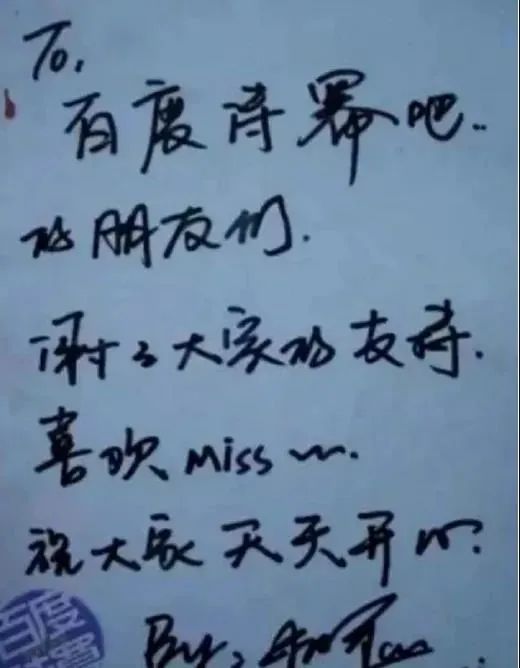 To,
百度诗幂吧..
的朋友们.
谢谢大家的支持.
喜欢 Miss ~.
祝大家天天开心.
By,
百度